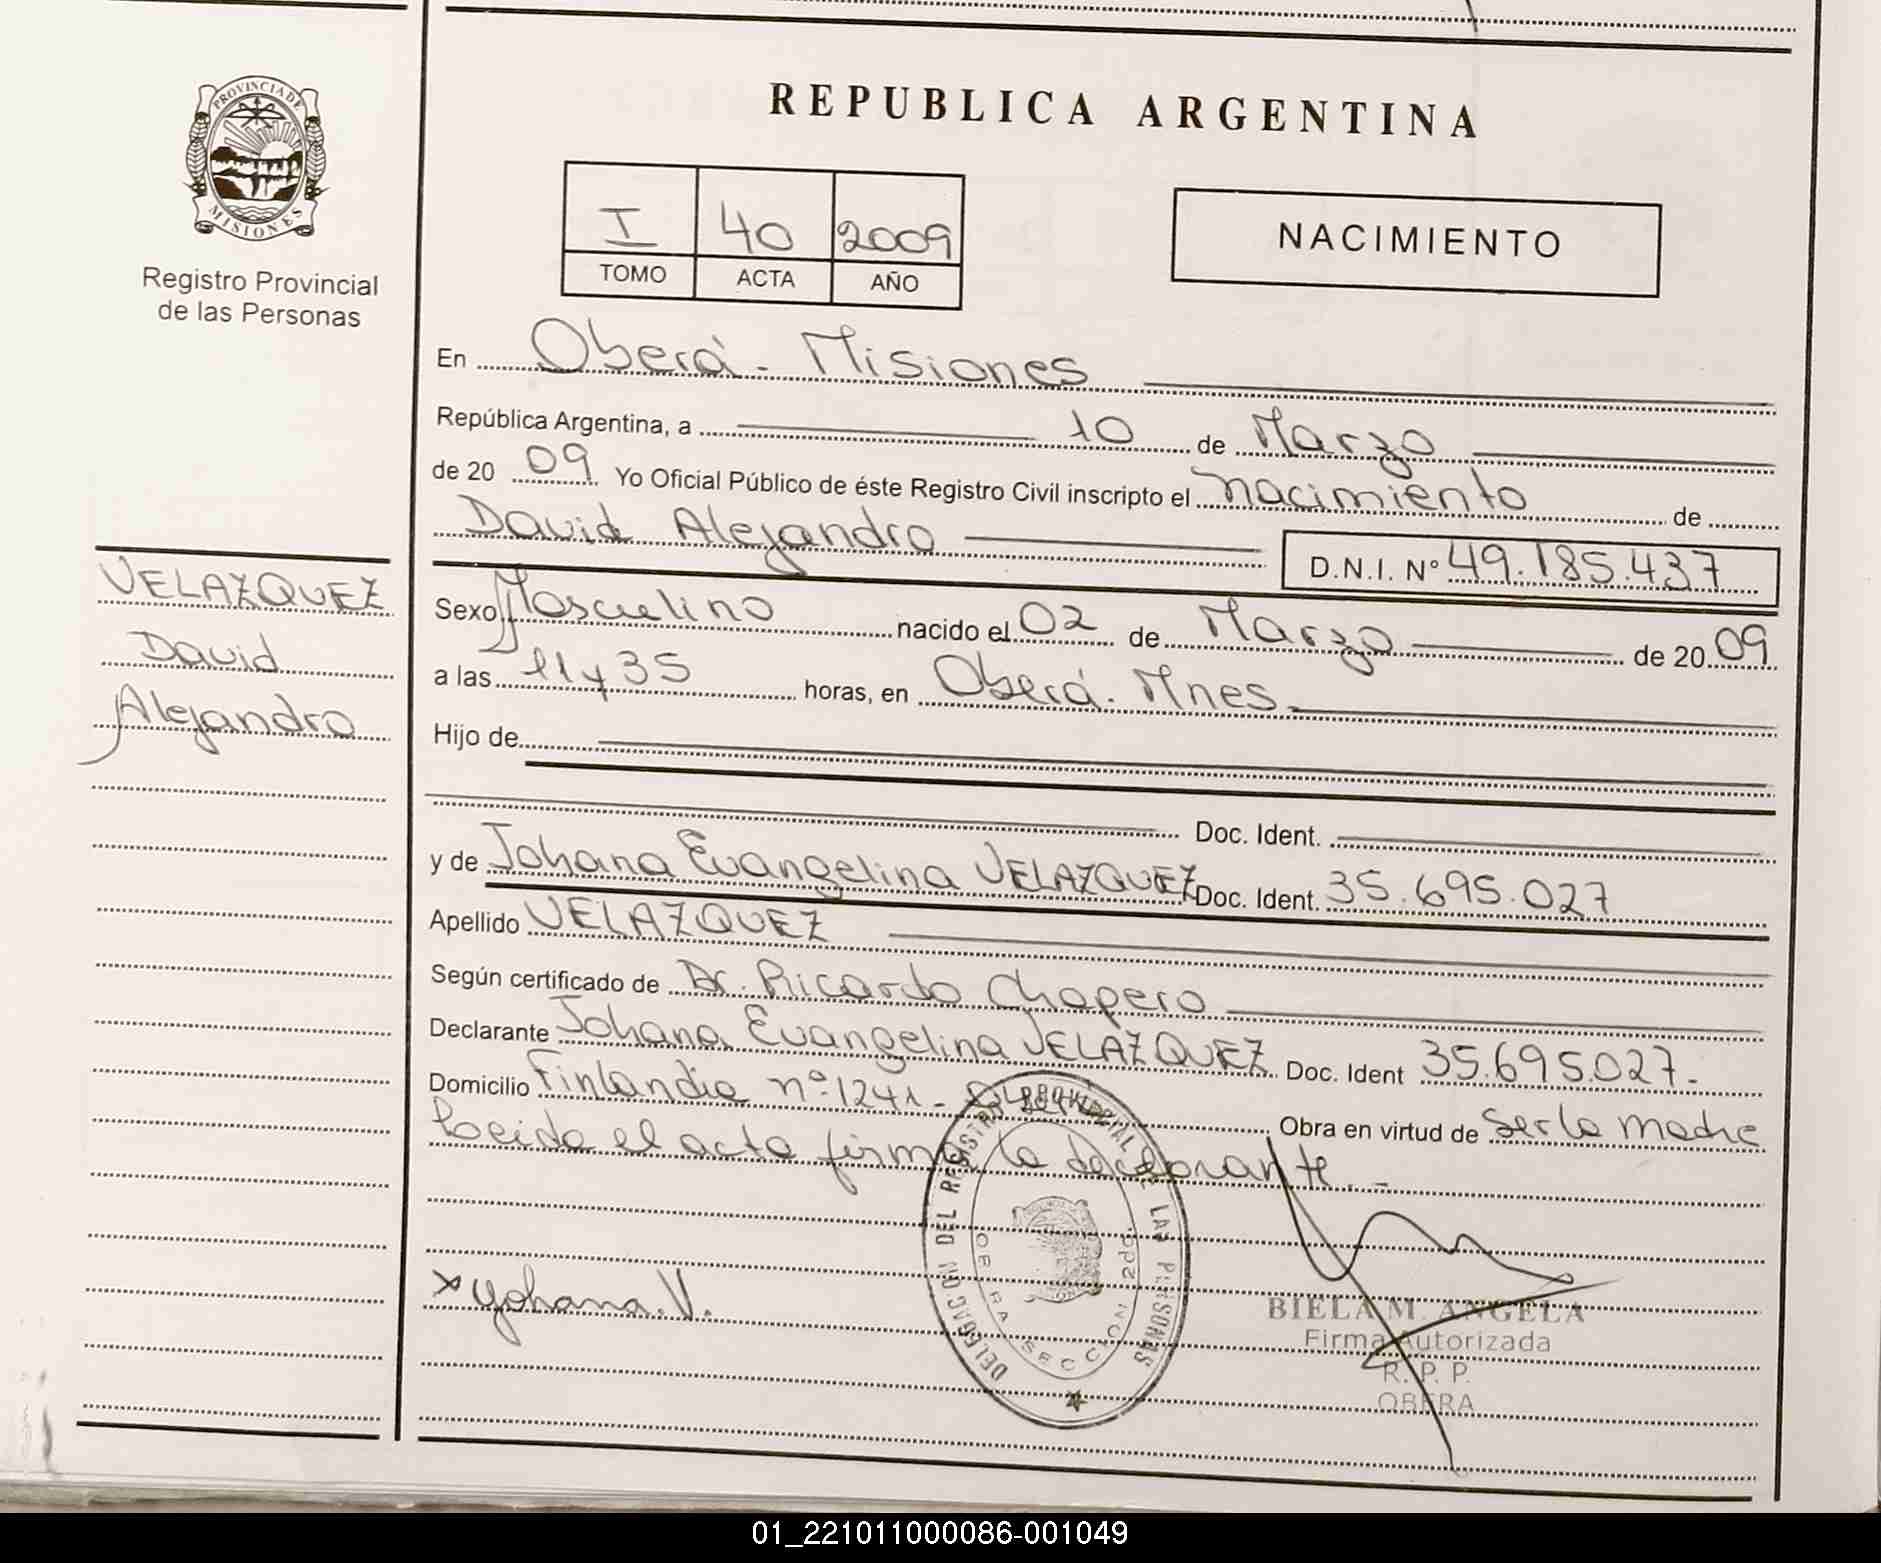 REPUBLICA ARGENTINA
PROVINCIA DE
MISIONES
Registro Provincial
de las Personas
I 40 2009
TOMO ACTA AÑO
NACIMIENTO
En Oberá - Misiones
República Argentina, a 10 de Marzo
de 20 09 Yo Oficial Público de éste Registro Civil inscripto el nacimiento de
David Alejandro D.N.I. N° 49.185.437
VELAZQUEZ
David
Alejandro
Sexo Masculino nacido el 02 de Marzo de 20 09
a las 11 y 35 horas, en Oberá. Mnes.
Hijo de
Doc. Ident.
y de Johana Evangelina VELAZQUEZ Doc. Ident. 35.695.027
Apellido VELAZQUEZ
Según certificado de Dr. Ricardo Chapero
Declarante Johana Evangelina VELAZQUEZ Doc. Ident 35.695.027.-
Domicilio Finlandia nº 1241 - Obra en virtud de ser la madre
Leida el acta firma la declarante.-
DELEGAC. DEL REGISTRO PROVINCIAL DE LAS PERSONAS
OBERA SECCION 2da.
x Yohana.V.
BIELA M. ANGELA
Firma Autorizada
R. P. P.
OBERA
01_221011000086-001049